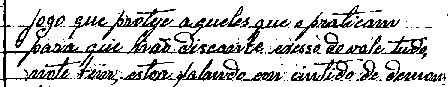 jogo que proteje aqueles que o praticam
para que não discarte esesso de vale tudo,
note bem, estou falando em cintido de demon